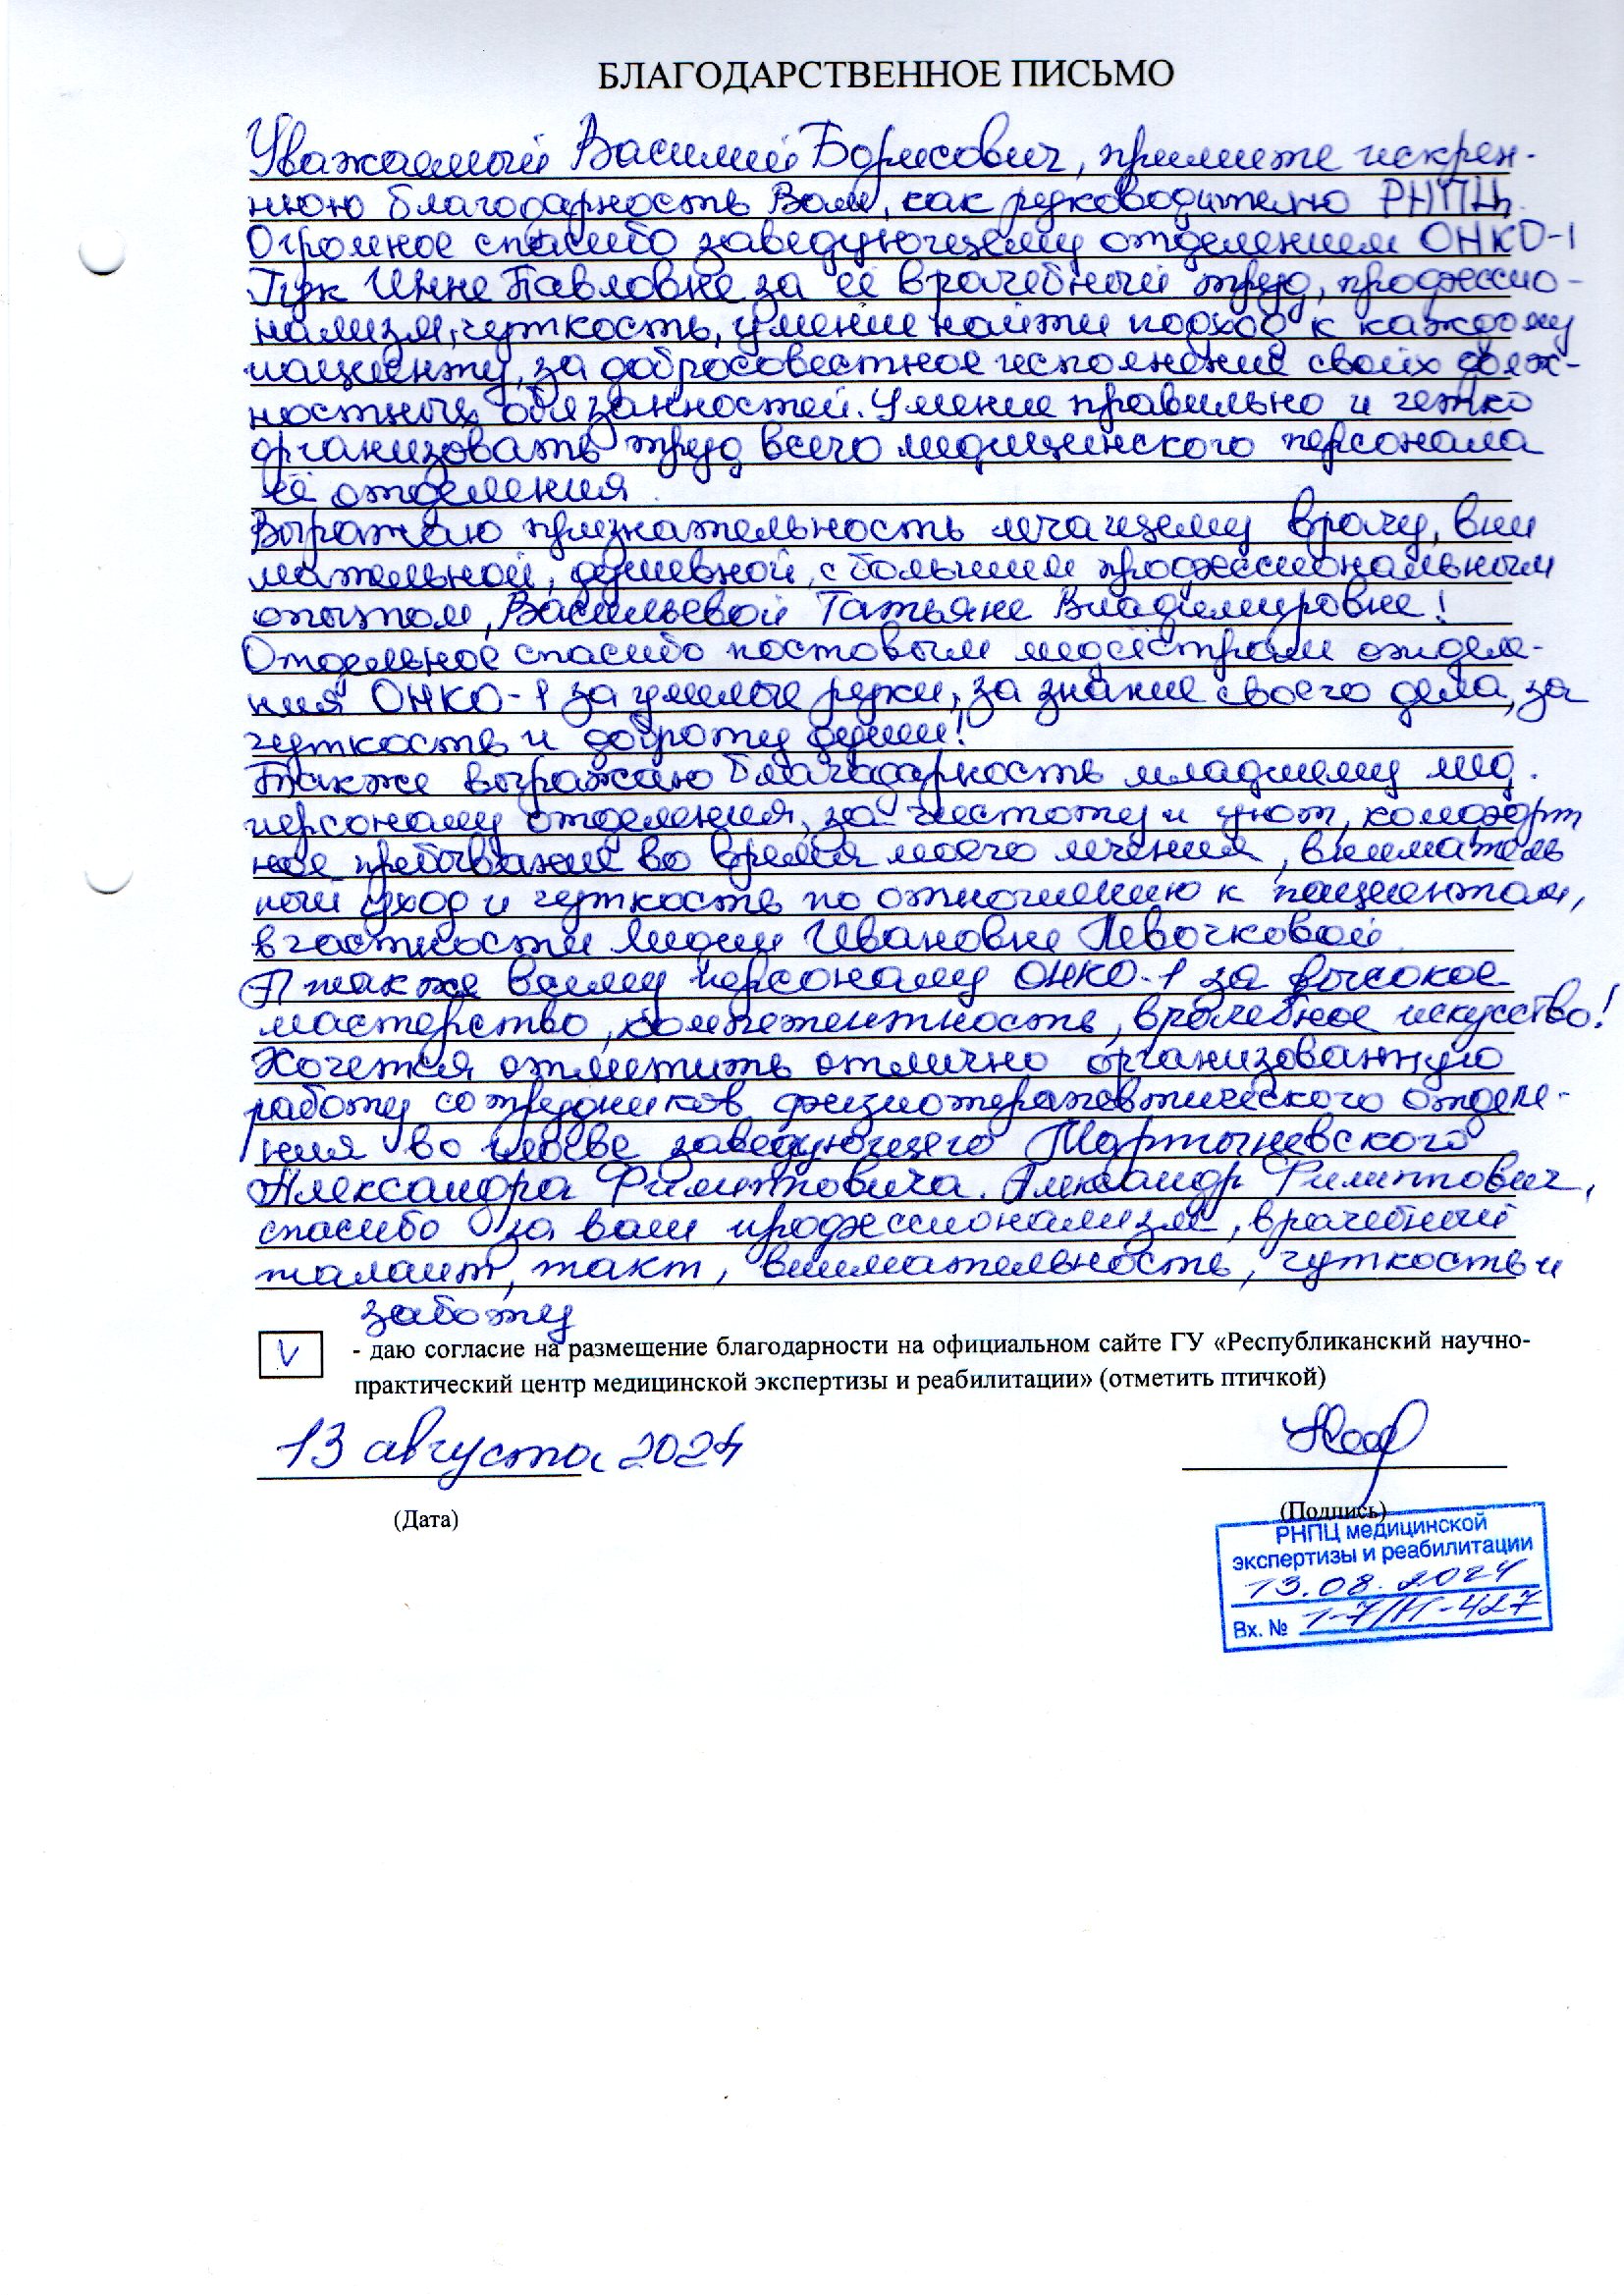 БЛАГОДАРСТВЕННОЕ ПИСЬМО
Уважаемый Василий Борисович, примите искрен-
нюю благодарность Вам, как руководителю РНПЦ.
Огромное спасибо заведующему отделением ОНКО-1
Инне Павловне за её врачебный труд, профессио-
нализм, чуткость, умение найти подход к каждому
пациенту, за добросовестное исполнение своих долж-
ностных обязанностей. Умение правильно и четко
организовать труд всего медицинского персонала
её отделения.
Выражаю признательность лечащему врачу, вни
мательной, душевной, с большим профессиональным
опытом, Васильевой Татьяне Владимировне!
Отдельное спасибо постовым медсёстрам отделе-
ния ОНКО-1 за умелые руки, за знание своего дела, за
чуткость и доброту души!
Также выражаю благодарность младшему мед.
персоналу отделения, за чистоту и уют, комфорт
ное пребывание во время моего лечения, вниматель
ный уход и чуткость по отношению к пациентам,
в частности Лидии Ивановне Лёвочковой.
А также всему персоналу ОНКО-1 за высокое
мастерство, компетентность, врачебное искусство!
Хочется отметить отлично организованную
работу сотрудников физиотерапевтического отделе-
ния во главе заведующего Мартыневского
Александра Филипповича. Александр Филиппович,
спасибо за ваш профессионализм, врачебный
талант, такт, внимательность, чуткость и
заботу
V - даю согласие на размещение благодарности на официальном сайте ГУ «Республиканский научно-
практический центр медицинской экспертизы и реабилитации» (отметить птичкой)
13 августа 2024
(Дата) (Подпись)
РНПЦ медицинской
экспертизы и реабилитации
13.08.2024
Вх. № 1-7/Н-427